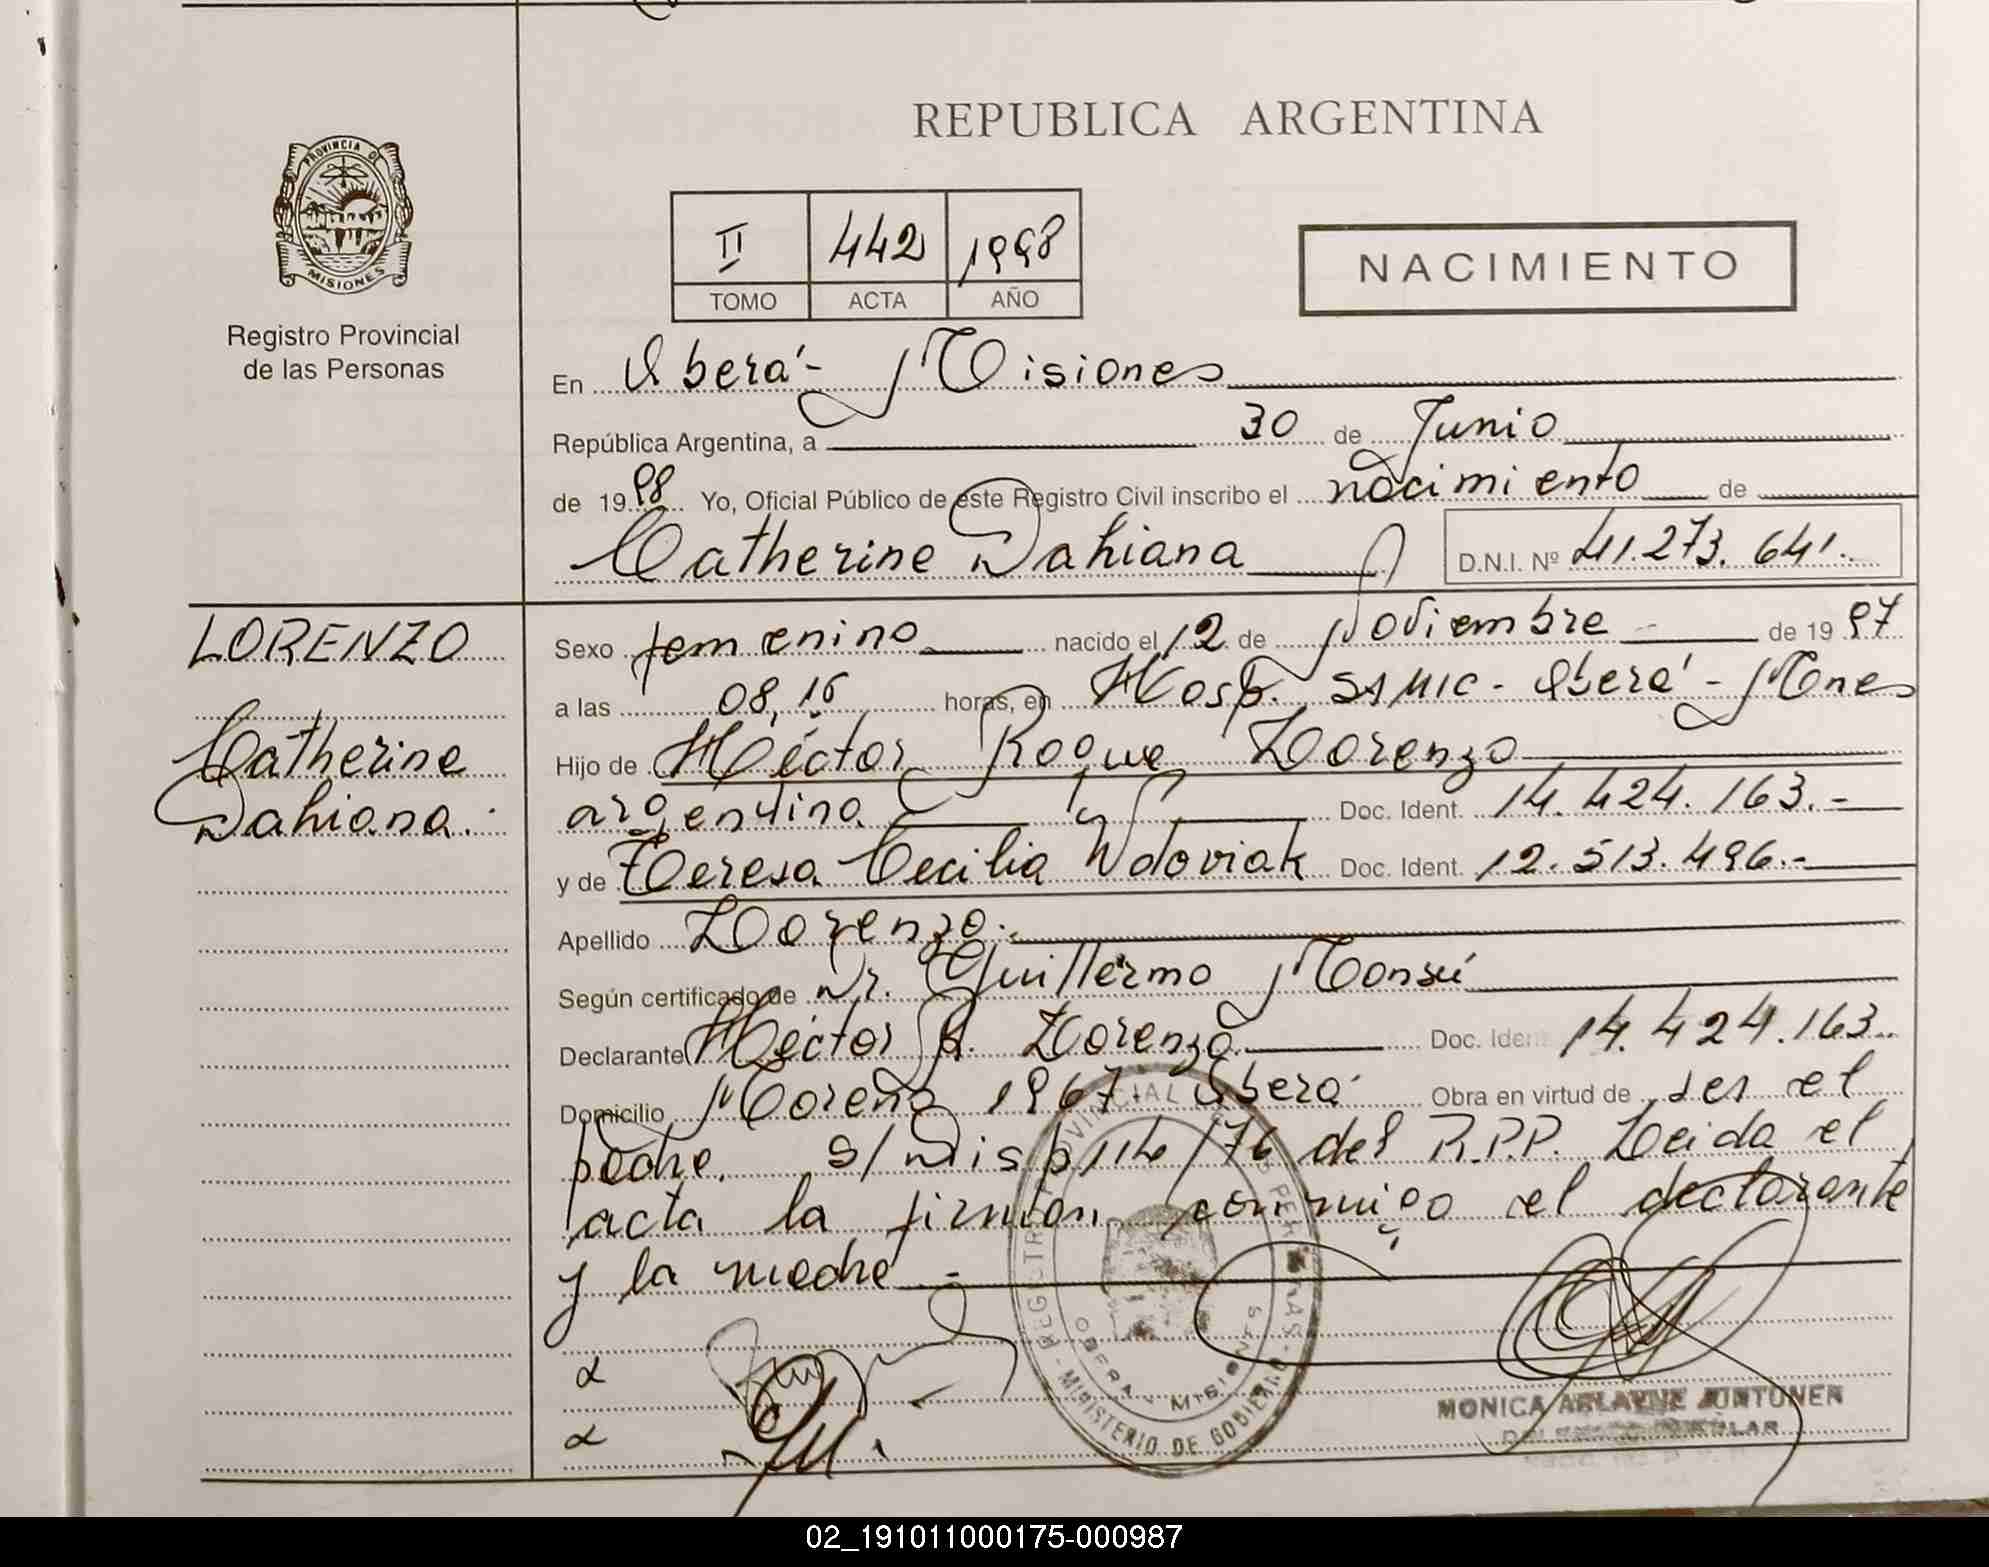 REPUBLICA ARGENTINA
PROVINCIA DE
MISIONES
Registro Provincial
de las Personas
II 442 1998
TOMO ACTA AÑO
NACIMIENTO
En Oberá - Misiones
República Argentina, a 30 de Junio
de 1998 Yo, Oficial Público de este Registro Civil inscribo el nacimiento de
Catherine Dahiana D.N.I. Nº 41.273.641.-
LORENZO
Catherine
Dahiana.
Sexo femenino nacido el 12 de Noviembre de 1997
a las 08,16 horas, en Hosp. SAMIC - Oberá - Mnes
Hijo de Héctor Roque Lorenzo
argentino Doc. Ident. 14.424.163.-
y de Teresa Cecilia Wdoviak Doc. Ident. 12.513.496.-
Apellido Lorenzo.-
Según certificado de Dr. Guillermo Monsú
Declarante Héctor R. Lorenzo Doc. Ident 14.424.163..
Domicilio Moreno 1967 Oberá Obra en virtud de ser el
padre. s/Disp 114/76 del R.P.P. Leida el
acta la firman conmigo el declarante
y la madre.-
REGISTRO PROVINCIAL PERSONAS
OBERA - MISIONES
MINISTERIO DE GOBIERNO
MONICA ARLAYNE JUNTUNEN
02_191011000175-000987